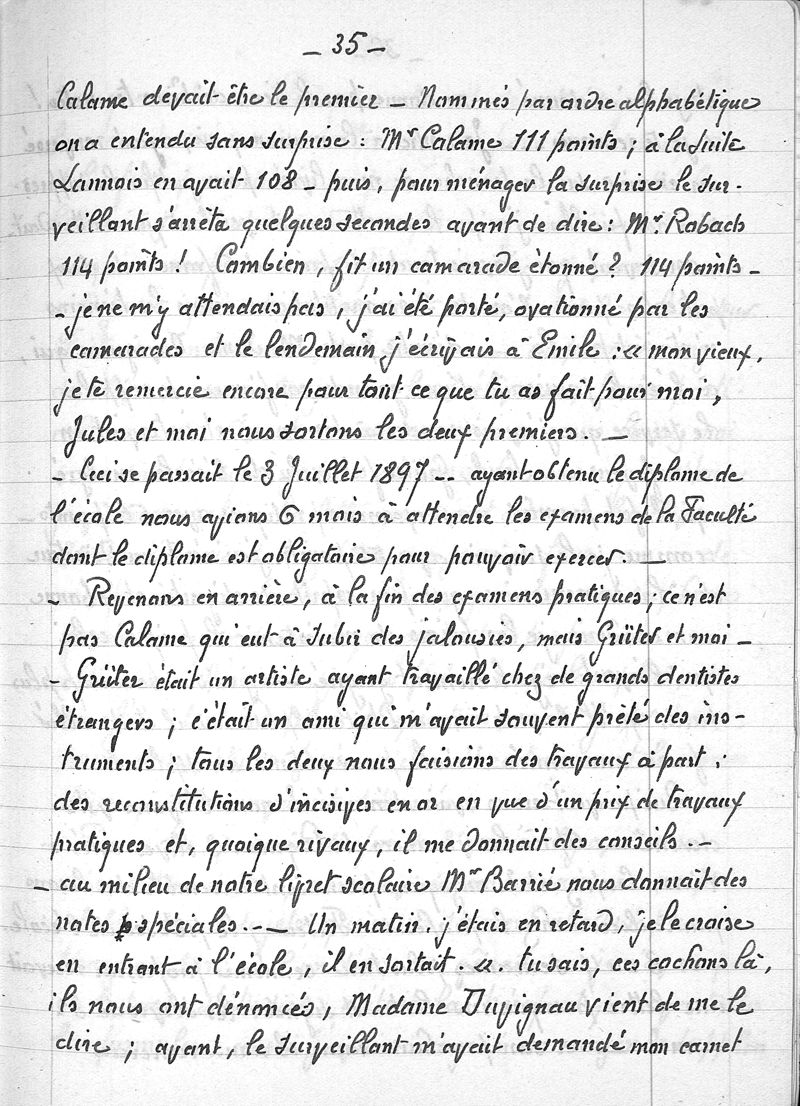 - 35 -
Calame devait être le premier - Nommés par ordre alphabétique
on a entendu sans surprise : Mr Calame 111 points ; à la suite
Lannois en avait 108 - puis, pour ménager la surprise le sur-
veillant s'arrêta quelques secondes avant de dire : Mr. Robach
114 points ! Combien, fit un camarade étonné ? 114 points -
- je ne m'y attendais pas, j'ai été porté, ovationné par les
camarades et le lendemain j'écrivais à Emile : « mon vieux,
je te remercie encore pour tout ce que tu as fait pour moi,
Jules et moi nous sortons les deux premiers. -
- Ceci se passait le 3 Juillet 1897 -- ayant obtenu le diplome de
l'école nous avions 6 mois à attendre les examens de la Faculté
dont le diplome est obligatoire pour pouvoir exercer. -
- Revenons en arrière, à la fin des examens pratiques ; ce n'est
pas Calame qui eut à subir des jalousies, mais Grüter et moi -
- Grüter était un artiste ayant travaillé chez de grands dentistes
étrangers ; c'était un ami qui m'avait souvent prêté des ins-
truments ; tous les deux nous faisions des travaux à part :
des reconstitutions d'incisives en or en vue d'un prix de travaux
pratiques et, quoique rivaux, il me donnait des conseils. -
- au milieu de notre livret scolaire Mr Barrié nous donnait des
notes spéciales. - - Un matin, j'étais en retard, je le croise
en entrant à l'école, il en sortait. «. tu sais, ces cochons là,
ils nous ont dénoncés, Madame Duvignau vient de me le
dire ; avant, le surveillant m'avait demandé mon carnet